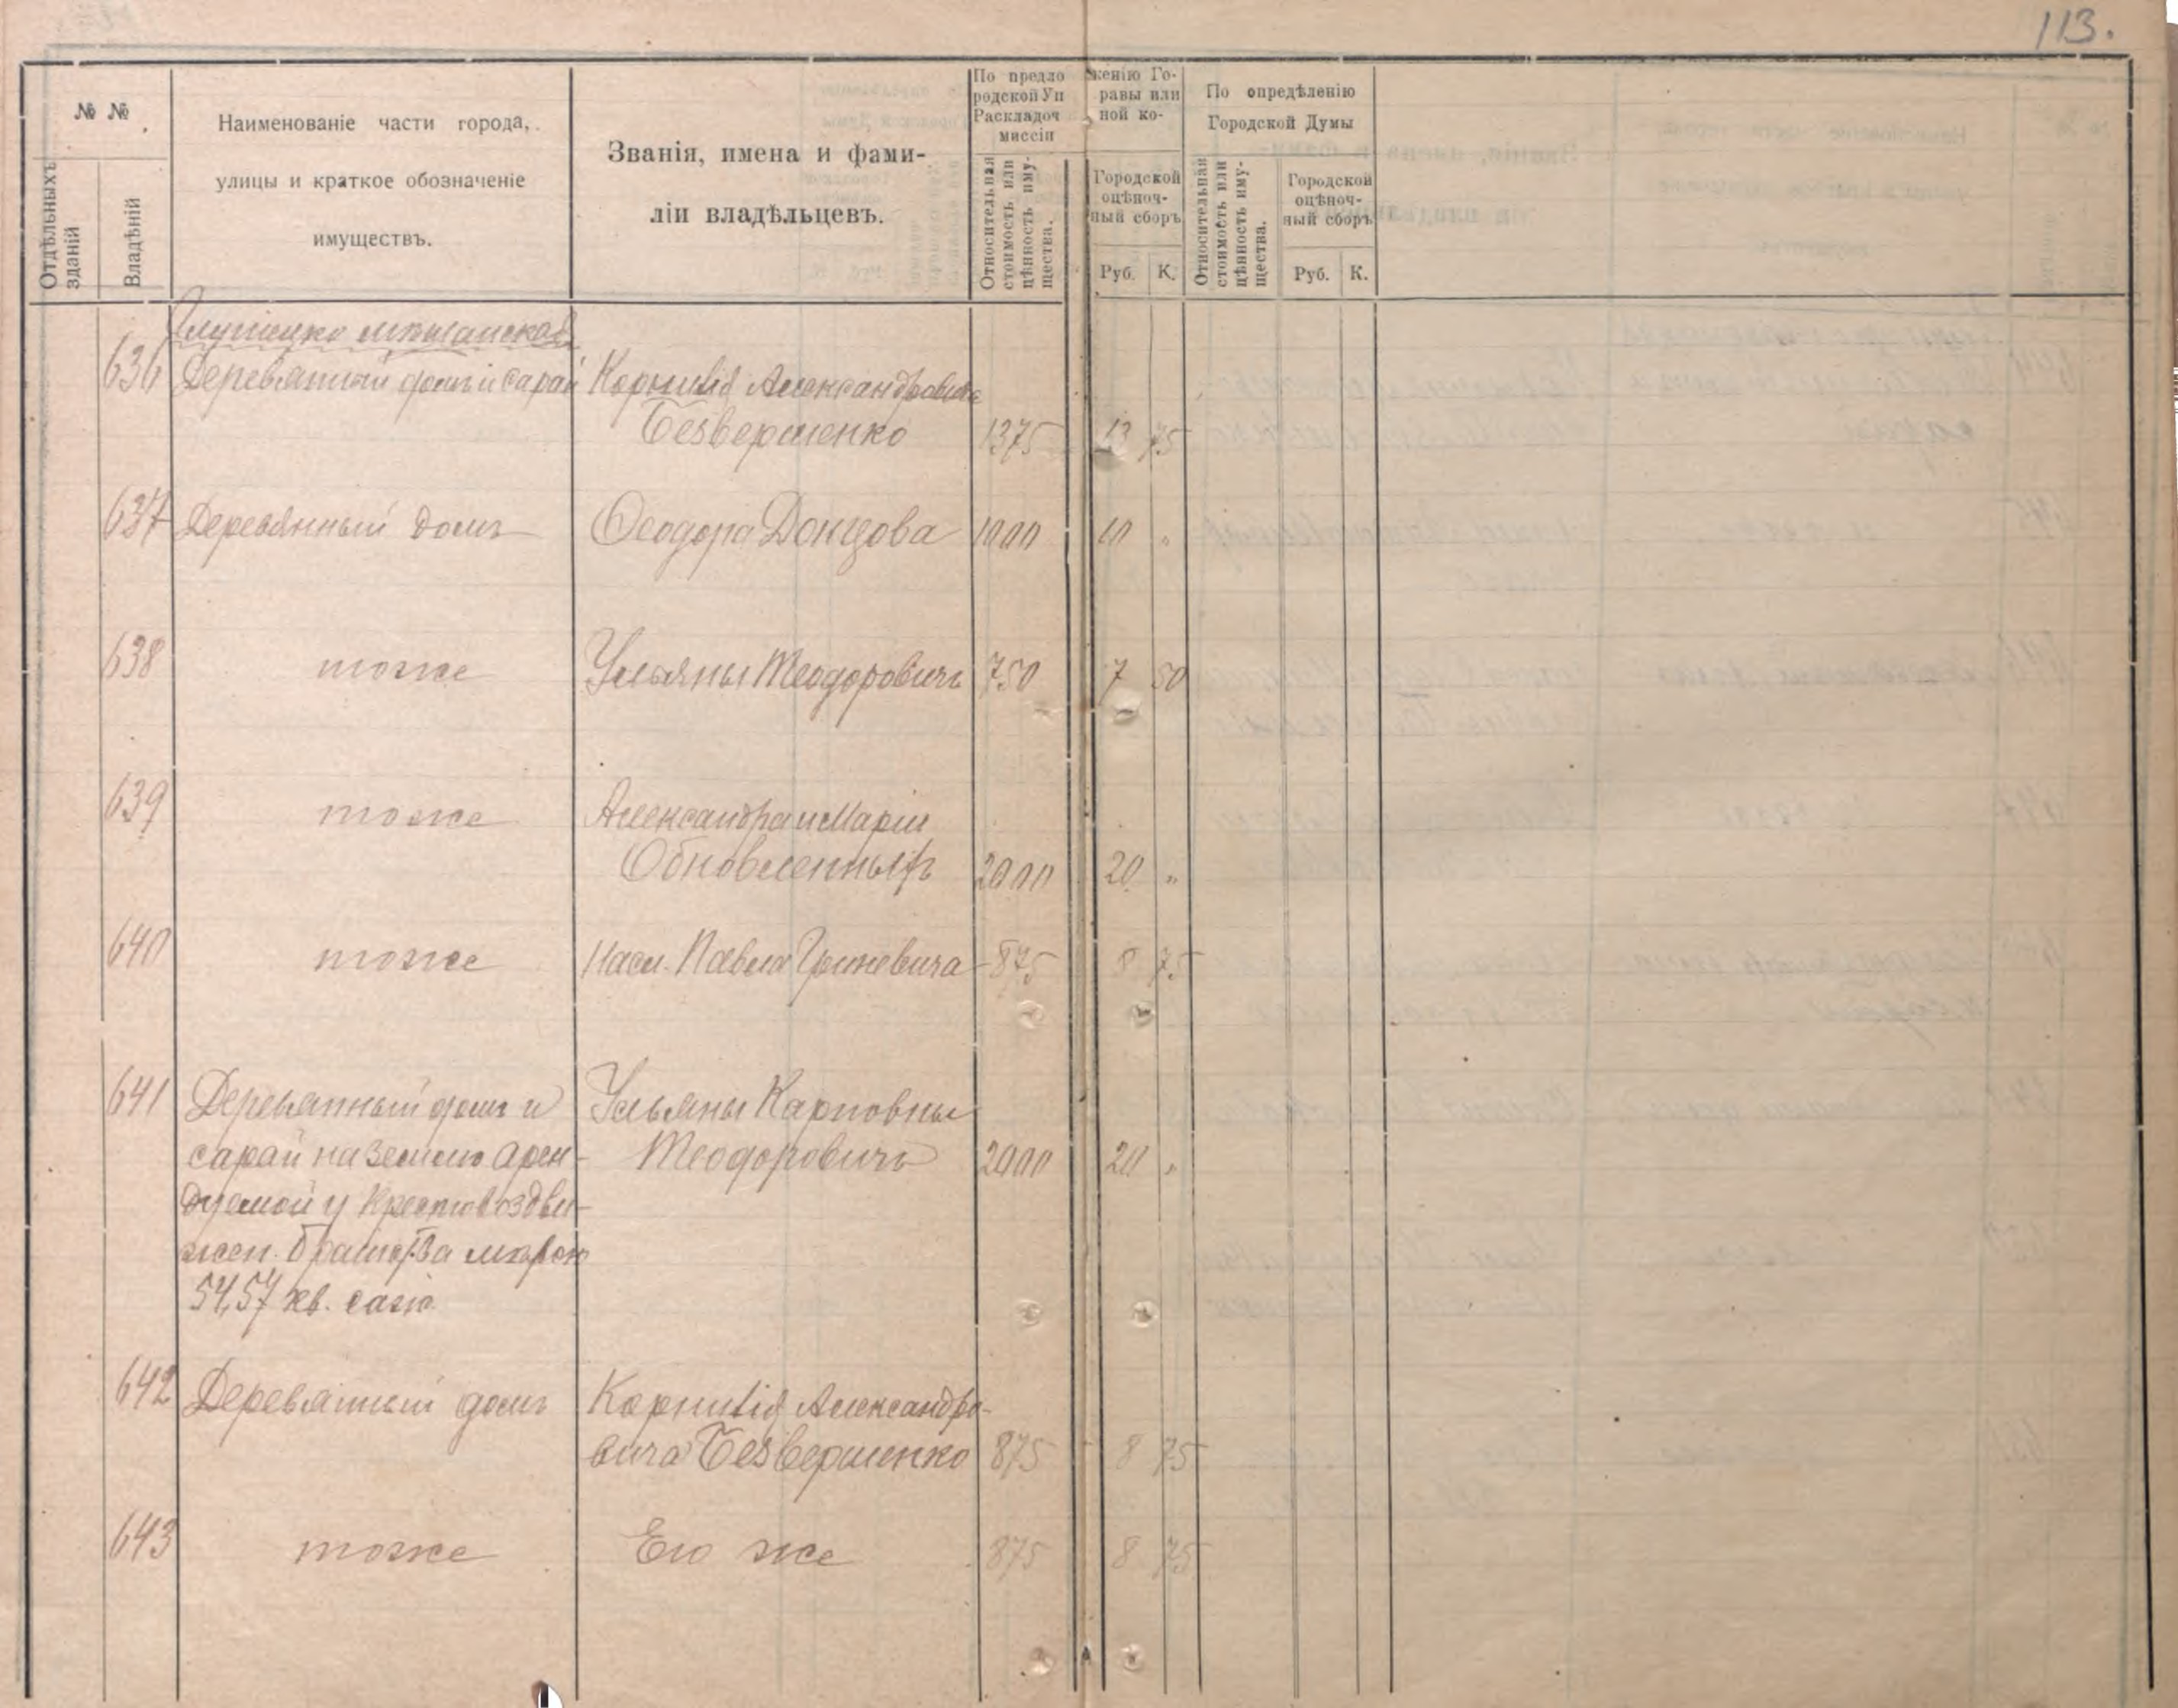 113.
№ №
Отдѣльныхъ зданій
Владѣній
Наименованіе части города,
улицы и краткое обозначеніе
имуществъ.
Званія, имена и фами-
ліи владѣльцевъ.
По предло женію Го-
родской Уп равы или
Раскладоч ной ко-
миссіи
Относительная
стоимость или
цѣнность иму-
щества.
Городской
оцѣноч-
ный сборъ
Руб. К.
По опредѣленію
Городской Думы
Относительная
стоимость или
цѣнность иму-
щества.
Городской
оцѣноч-
ный сборъ
Руб. К.
636 Деревянный домъ и сарай Корнилія Александровича
Безвершенко 1375 13 75
637 Деревянный домъ Ѳеодора Донцова 1000 10 „
638 тоже Ульяны Теодоровичъ 750 7 50
639 тоже Александра и Маріи
Обновленныхъ 2000 20 „
640 тоже Насл. Павла Гриневича 875 8 75
641 Деревянный домъ и Ульяны Карповны
сарай на землѣ арен- Теодоровичъ 2000 20 „
дуемой у Крестовоздви-
жен. братства мѣрою
54,57 кв. саж.
642 Деревянный домъ Корнилія Александро-
вича Безвершенко 875 8 75
643 тоже Его же 875 8 75